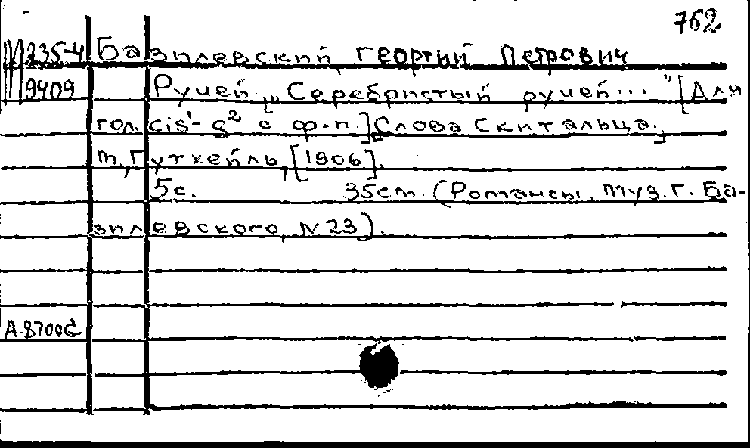 762
М 235-4 Базилевский Георгий Петрович
9409 Ручей. „Серебристый ручей..." [Для
гол. cis¹-g² с ф.-п.] Слова Скитальца.
М., Гутхейль, [1906].
5с. 35см. (Романсы. Муз. Г. Ба-
зилевского, N 23).